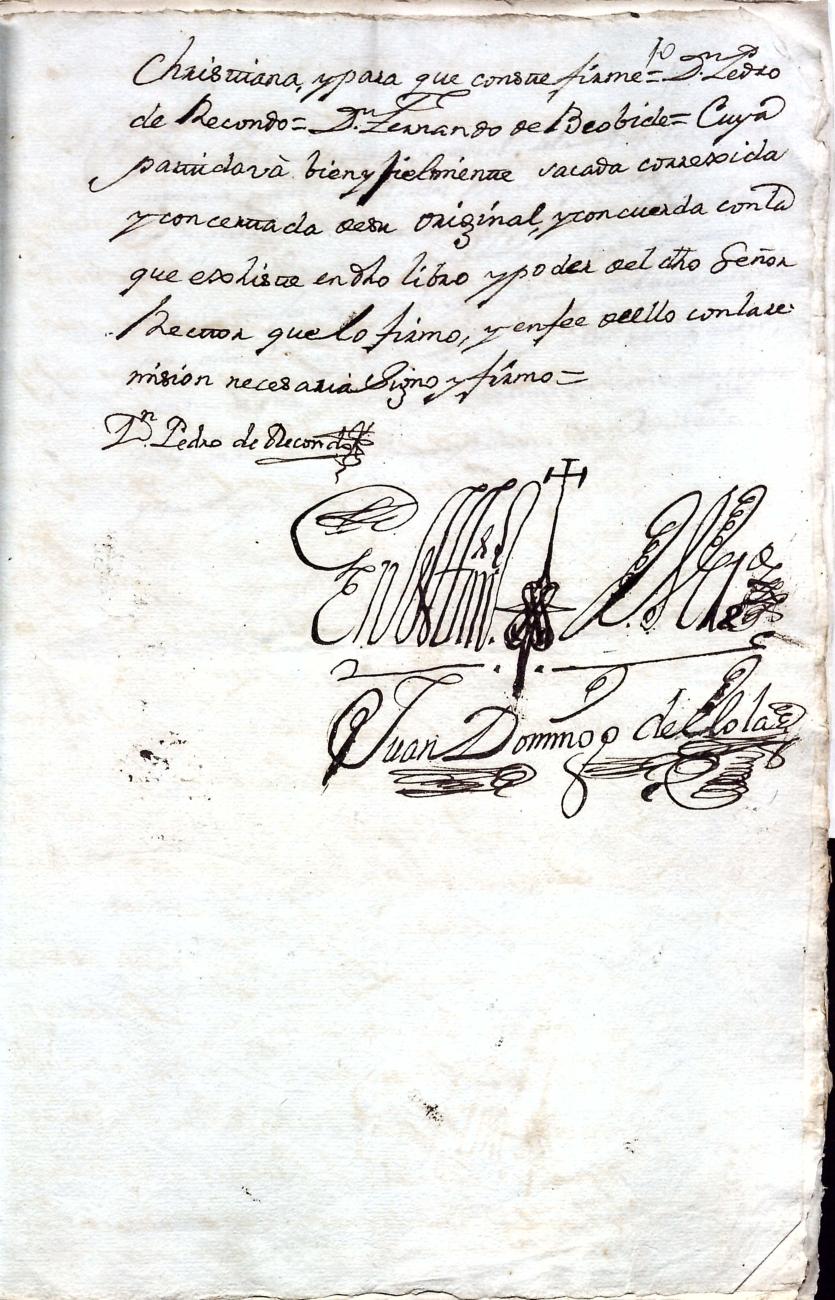 Christiana, y para que conste firme = Dn Pedro
de Recondo = Dn Fernando de Beobide = Cuya
partida và bien y fielmente sacada correxida
y concertada de su original, y concuerda con la
que existe en dho libro y poder del dho Señor
Rector que lo firmo, y en fee de ello con la re-
mision necesaria Signo y firmo =
Dn Pedro de Recondo
En testim.
Juan Domingo de